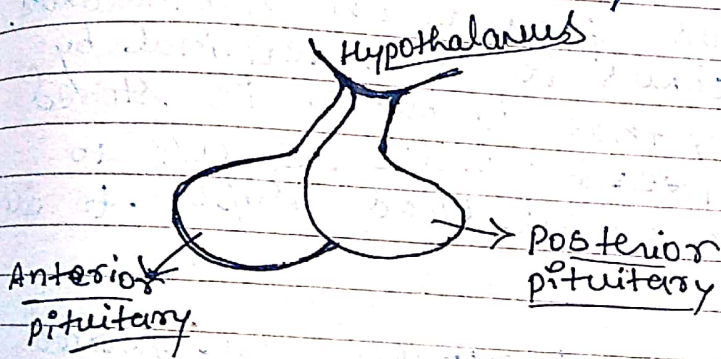 Hypothalamus
Anterior
pituitary
Posterior
pituitary